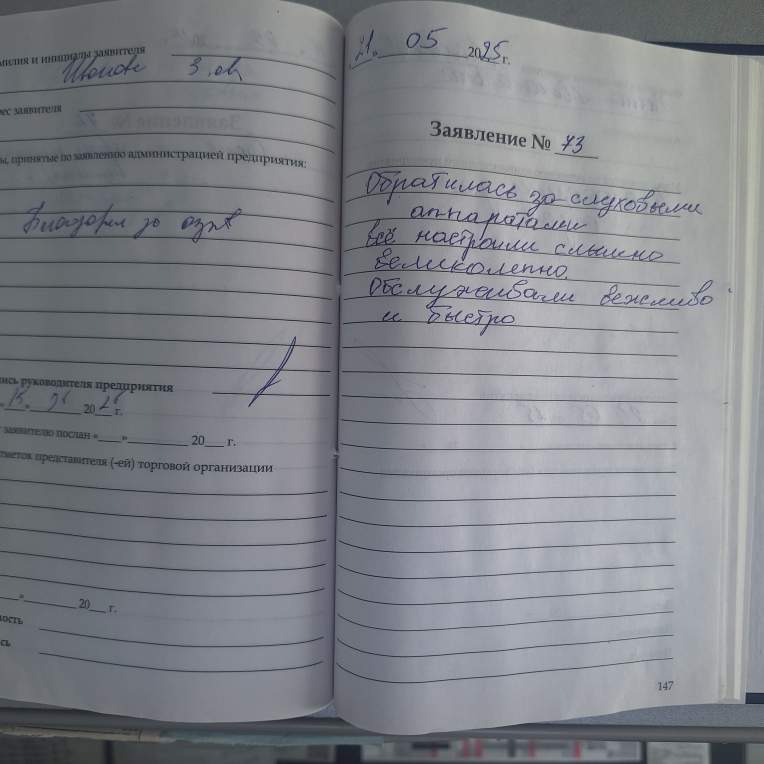 заявителя
ес заявителя
ы, принятые по заявлению администрацией предприятия:
Благодарен за
руководителя предприятия
20 г.
заявителю послан « » 20 г.
представителя (-ей) торговой организации
» 20 г.
ость
сь
21. 05 2025 г.
Заявление № 73
Обратилась за слуховыми
аппаратами
всё настроили слышно
великолепно
Обслуживали вежливо
и быстро
147